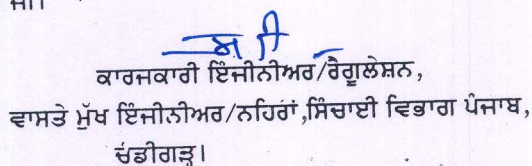 ਜੀ।
ਕਾਰਜਕਾਰੀ ਇੰਜੀਨੀਅਰ/ਰੈਗੂਲੇਸ਼ਨ,
ਵਾਸਤੇ ਮੁੱਖ ਇੰਜੀਨੀਅਰ/ਨਹਿਰਾਂ,ਸਿੰਚਾਈ ਵਿਭਾਗ ਪੰਜਾਬ,
ਚੰਡੀਗੜ੍ਹ।